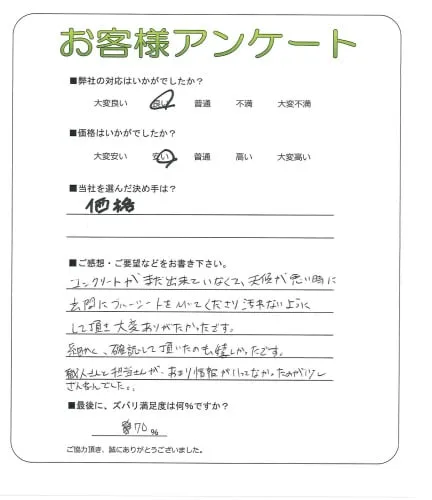 お客様アンケート
■弊社の対応はいかがでしたか？
大変良い 良い 普通 不満 大変不満
■価格はいかがでしたか？
大変安い 安い 普通 高い 大変高い
■当社を選んだ決め手は？
価格
■ご感想・ご要望などをお書き下さい。
コンクリートがまだ出来ていなくて、天候が悪い時に
玄関にブルーシートをしいてくださり汚れないように
して頂き大変ありがたかったです。
細かく、確認して頂いたのも嬉しかったです。
職人さんと担当さんが、あまり情報が入ってなかったのが少し
ざんねんでした。
■最後に、ズバリ満足度は何%ですか？
70%
ご協力頂き、誠にありがとうございました。